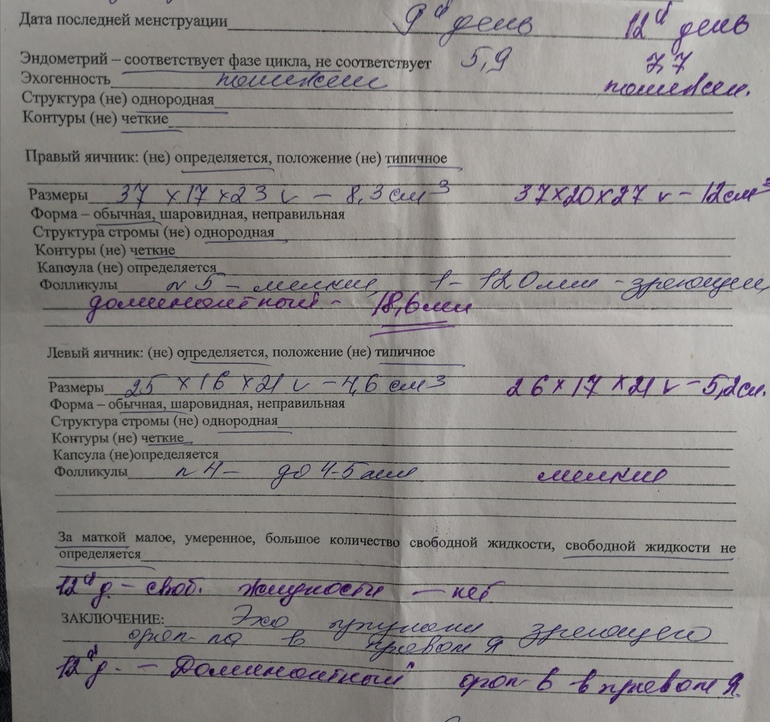 Дата последней менструации 9й день 12й день
Эндометрий – соответствует фазе цикла, не соответствует 5,9 7,7
Эхогенность понижен понижен.
Структура (не) однородная
Контуры (не) четкие
Правый яичник: (не) определяется, положение (не) типичное
Размеры 37 x 17 x 23 v – 8,3 см3 37x20x27 v – 12 см3
Форма – обычная, шаровидная, неправильная
Структура стромы (не) однородная
Контуры (не) четкие
Капсула (не) определяется
Фолликулы n 5 – мелкие, 1 – 12,0 мм – зреющий,
доминантный – 18,6 мм
Левый яичник: (не) определяется, положение (не) типичное
Размеры 25 x 16 x 21 v – 4,6 см3 26 x 17 x 21 v – 5,2 см.
Форма – обычная, шаровидная, неправильная
Структура стромы (не) однородная
Контуры (не) четкие
Капсула (не)определяется
Фолликулы n 4 – до 4-5 мм мелкие
За маткой малое, умеренное, большое количество свободной жидкости, свободной жидкости не
определяется
12й д. – своб. жидкости – нет
ЗАКЛЮЧЕНИЕ: Эхо признаки зреющего
фол-ла в правом Я
12й д. – Доминантный фол-в в правом Я.